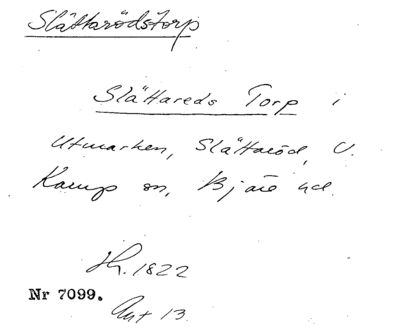 Slättarödstorp
Slättareds Torp i
Utmarken, Slättaröd, V.
Karup sn, Bjäre hd.
Hr. 1822
Nr 7099.
Ant 13